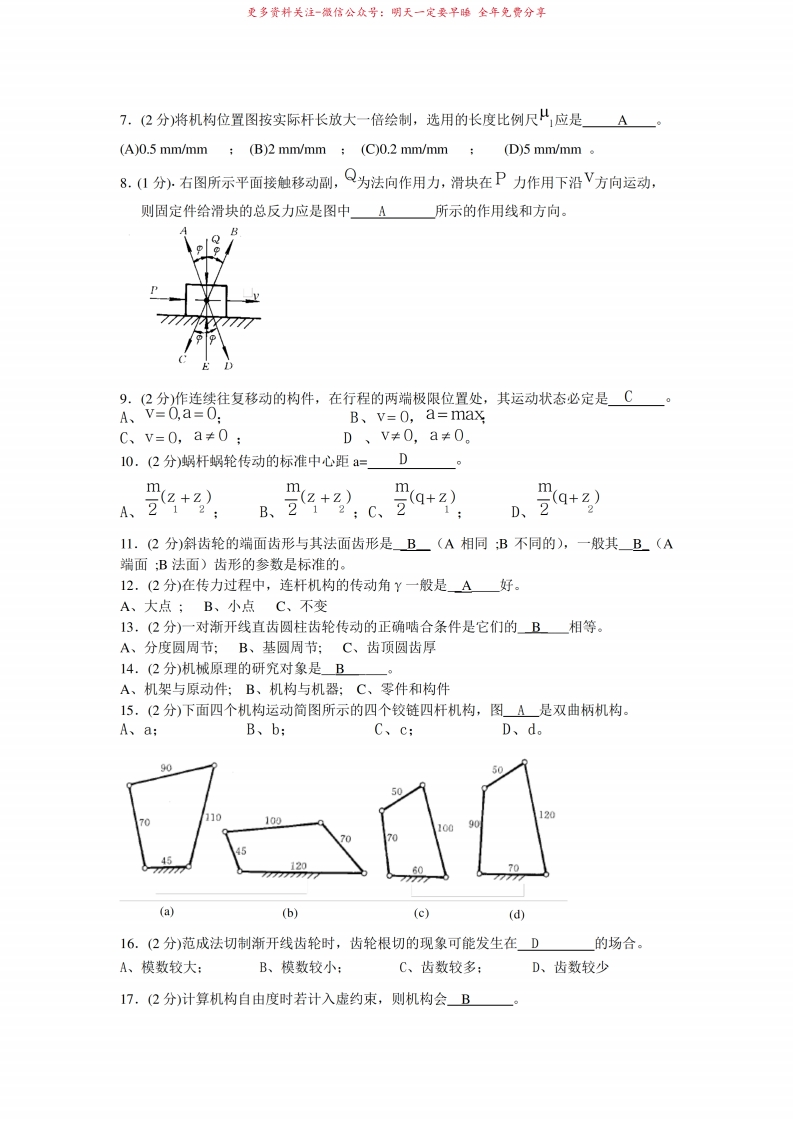 更多资料关注-微信公众号：明天一定要早睡 全年免费分享
7．(2 分)将机构位置图按实际杆长放大一倍绘制，选用的长度比例尺μl应是 A 。
(A)0.5 mm/mm ； (B)2 mm/mm ； (C)0.2 mm/mm ； (D)5 mm/mm 。
8．(1 分)．右图所示平面接触移动副，Q为法向作用力，滑块在 P 力作用下沿 v方向运动，
则固定件给滑块的总反力应是图中 A 所示的作用线和方向。
A Q B
φ φ
P v
φ φ
C E D
9．(2 分)作连续往复移动的构件，在行程的两端极限位置处，其运动状态必定是 C 。
A、v＝0,a＝0； B、v＝0，a＝max；
C、v＝0，a≠0 ； D 、v≠0，a≠0。
10．(2 分)蜗杆蜗轮传动的标准中心距 a= D 。
A、m/2(z1＋z2)； B、m/2(z1＋z2)；C、m/2(q＋z1)； D、m/2(q＋z2)
11．(2 分)斜齿轮的端面齿形与其法面齿形是 B （A 相同 ;B 不同的），一般其 B （A
端面 ;B 法面）齿形的参数是标准的。
12．(2 分)在传力过程中，连杆机构的传动角γ一般是 A 好。
A、大点 ； B、小点 C、不变
13．(2 分)一对渐开线直齿圆柱齿轮传动的正确啮合条件是它们的 B 相等。
A、分度圆周节; B、基圆周节; C、齿顶圆齿厚
14．(2 分)机械原理的研究对象是 B 。
A、机架与原动件; B、机构与机器; C、零件和构件
15．(2 分)下面四个机构运动简图所示的四个铰链四杆机构，图 A 是双曲柄机构。
A、a； B、b； C、c； D、d。
90 70 110 45
100 45 70 120
50 70 100 60
50 90 120 70
(a) (b) (c) (d)
16．(2 分)范成法切制渐开线齿轮时，齿轮根切的现象可能发生在 D 的场合。
A、模数较大； B、模数较小； C、齿数较多； D、齿数较少
17．(2 分)计算机构自由度时若计入虚约束，则机构会 B 。